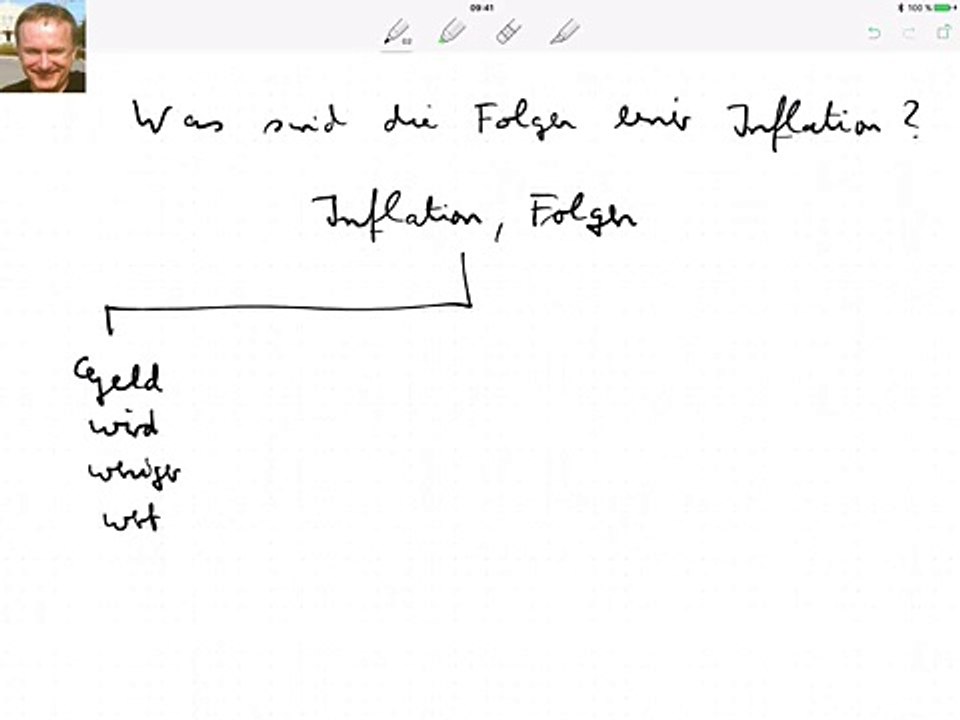 09:41
100 %
02
Was sind die Folgen einer Inflation?
Inflation, Folgen
Geld
wird
weniger
wert